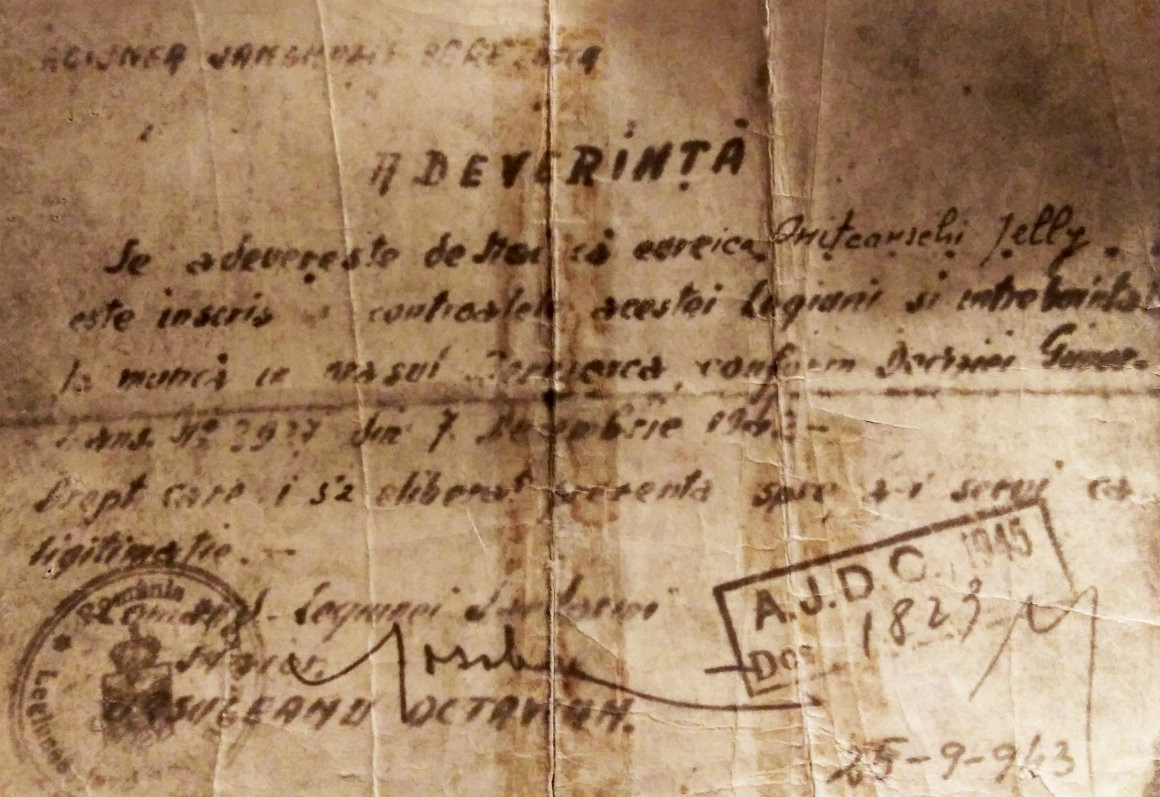 LEGIUNEA JANDARMI BEREZOVCA
ADEVERINȚĂ
Se adevereste de noi că evreica Onițcanschi Jelly.
este inscris controalele acestei Legiuni si intrebuintat
la muncă in orasul conform Deciziei Guver-
Trans. No 2927 din 7 Decembrie 1943-
Drept care i s'a eliberat prezenta spre a-i servi ca
ligitimatie.-
Legiunei Jandarmi
OCTAVIAN.
România
Legiunea
A.J.D.C. 1945
Dos. 1823
25-9-943